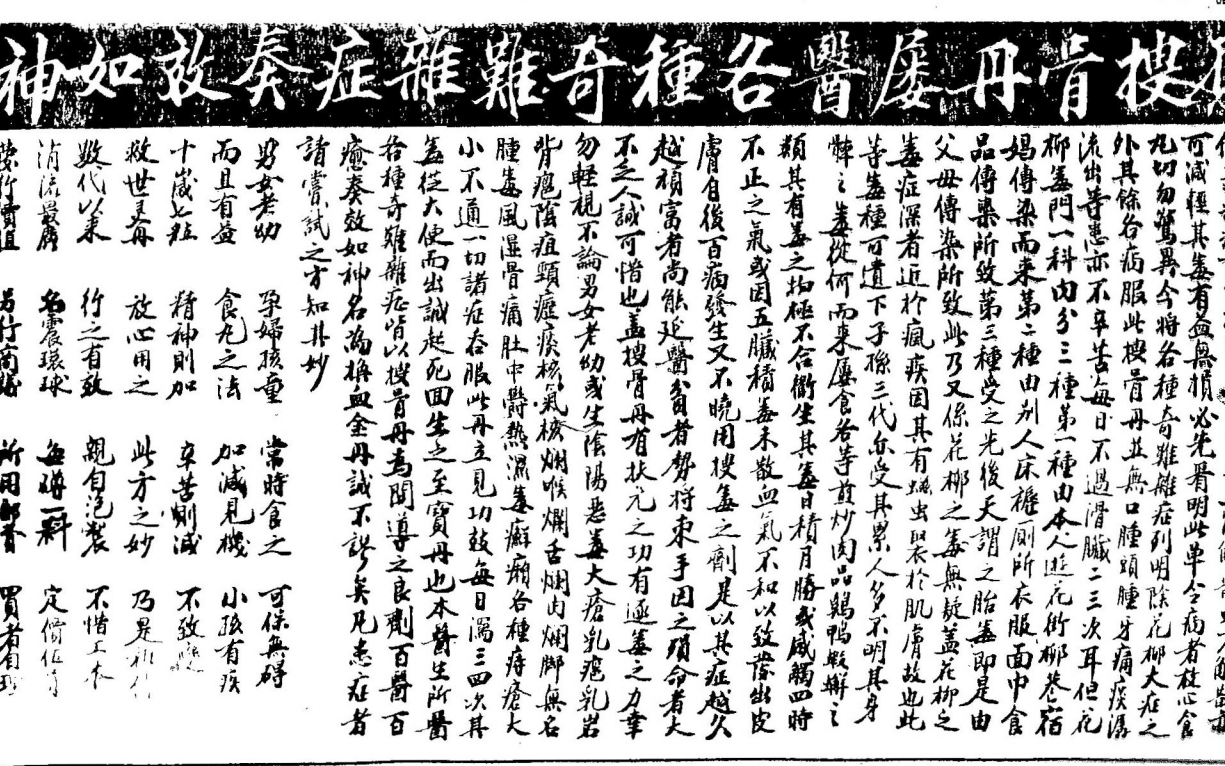 搜骨丹屡醫各種奇難雜症奏效如神
可减輕其毒有益無損必先看明此單令病者放心食
丸切勿驚異今將各種奇難雜症列明除花柳大症之
外其餘各病服此搜骨丹並無口腫頭腫牙痛痰潺
流出等患亦不辛苦每日不過滑臟二三次耳但花
柳毒門一科內分三種第一種由本人遊花街柳巷宿
娼傳染而來第二種由別人床褥厠所衣服面巾食
品傳染所致第三種受之先後天謂之胎毒即是由
父母傳染所致此乃又係花柳之毒無疑蓋花柳之
毒症深者近於瘋疾因其有虫聚於肌膚故也此
等毒種可遺下子孫三代亦受其累人多不明其身
體之毒從何而來屢食各等煎炒肉品鷄鴨蝦蠏之
類其有毒之物極不合衛生其毒日積月勝或感觸四時
不正之氣或因五臟積毒未散血氣不和以致發出皮
膚自後百病發生又不曉用搜毒之劑是以其症越久
越頑富者尚能延醫貧者勢將束手因之殞命者大
不乏人誠可惜也蓋搜骨丹有扶元之功有逐毒之力幸
勿輕視不論男女老幼或生陰陽惡毒大瘡乳癰乳岩
背癰陰疽頸癧痰核氣核爛喉爛舌爛肉爛脚無名
腫毒風濕骨痛肚中欝熱濕毒癬癩各種痔瘡大
小不通一切諸症吞服此丹立見功效每日瀉三四次其
毒從大便而出誠起死回生之至寶丹也本醫生所醫
各種奇難雜症皆以搜骨丹為開導之良劑百醫百
癒奏效如神名為補血金丹誠不謬矣凡患症者
請嘗試之方知其妙
男女老幼 孕婦孩童 常時食之 可保無碍
而且有益 食丸之法 加減見機 小孩有疾
十歲七粒 精神則加 辛苦則減 不致
救世灵丹 放心用之 此方之妙 乃是
數代以來 行之有效 親自泡製 不惜工本
消流最廣 名震環球 每購一料 定價
另行 所用 買者自